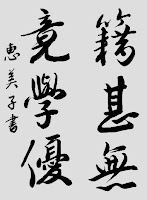 籍甚無
竟學優
惠美子書